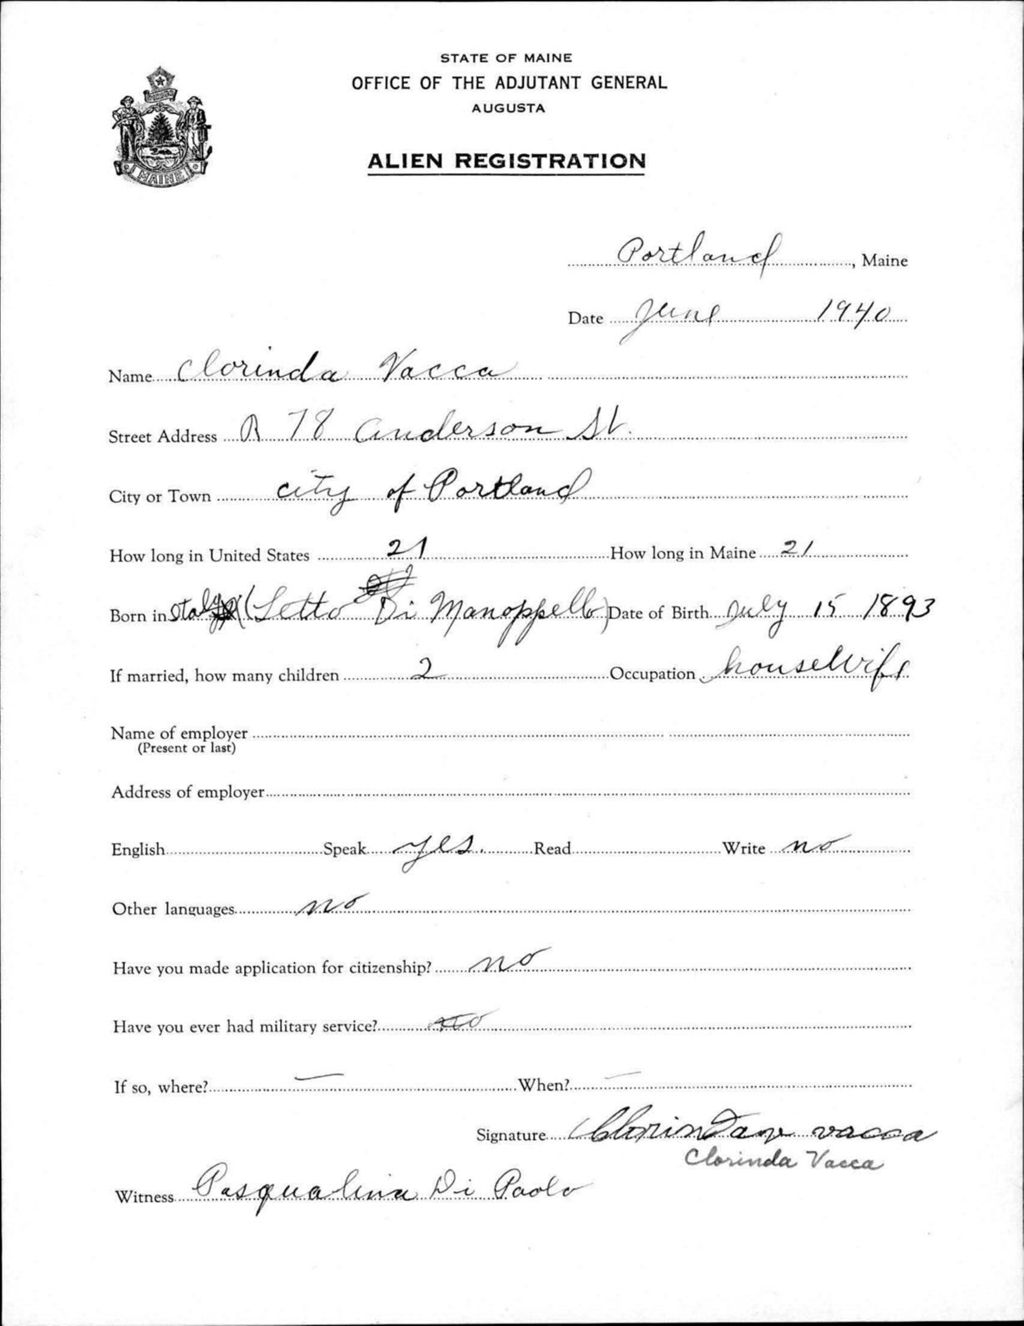 STATE OF MAINE
OFFICE OF THE ADJUTANT GENERAL
AUGUSTA
ALIEN REGISTRATION
MAINE
Portland, Maine
Date June 1940
Name Clorinda Vacca
Street Address R 78 Anderson St.
City or Town city of Portland
How long in United States 21 How long in Maine 21
Born in Italy (Letto Di Manoppello) Date of Birth July 15 1893
If married, how many children 2 Occupation housewife
Name of employer
(Present or last)
Address of employer
English Speak yes. Read Write no
Other languages no
Have you made application for citizenship? no
Have you ever had military service? no
If so, where? — When? —
Signature Clorinda vacca
Clorinda Vacca
Witness Pasqualina Di Paolo